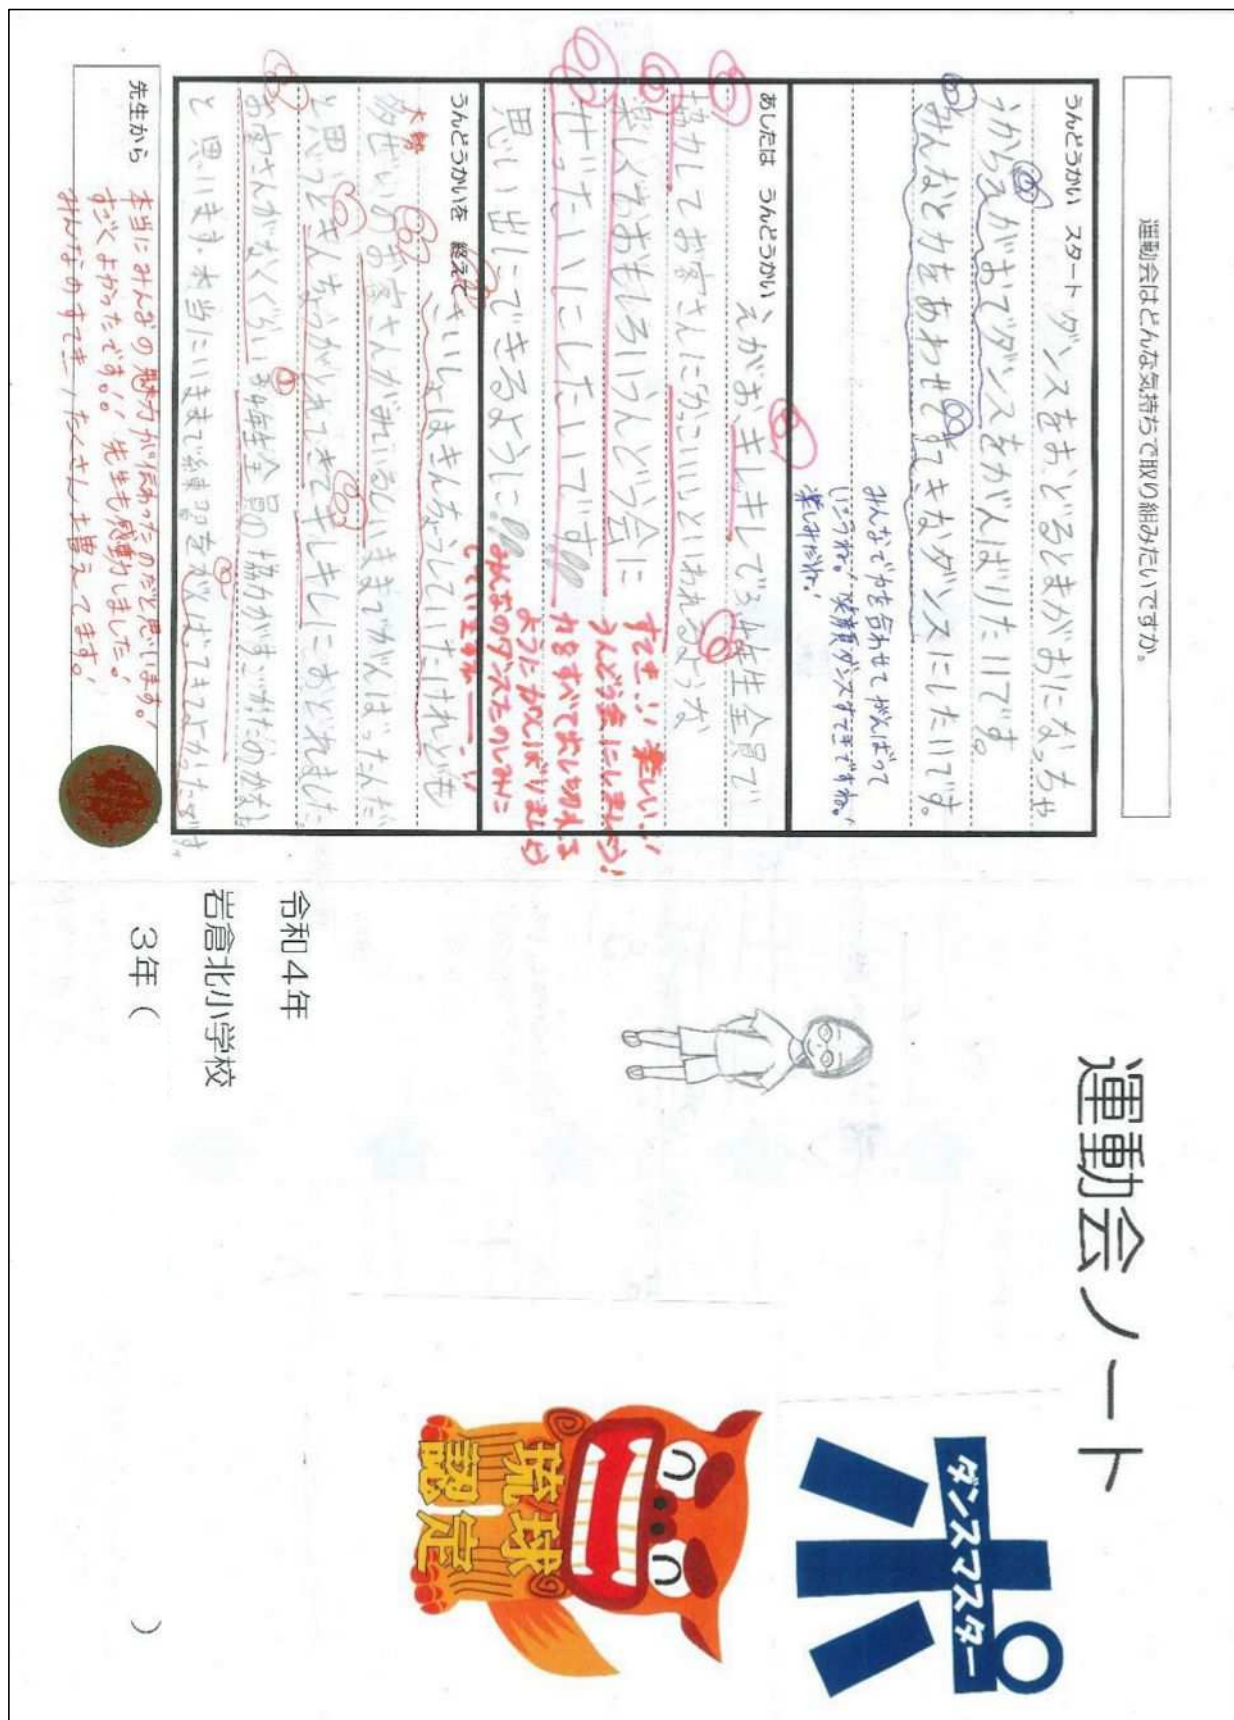 運動会はどんな気持ちで取り組みたいですか。
うんどうかい スタート
ダンスをおどるとまがおになっちゃ
うからえがおでダンスをがんばりたいです。
みんなと力をあわせてすてきなダンスにしたいです。
みんなで力を合わせてがんばって
いこうね。笑顔ダンスすてきですね。
楽しみだね!
あしたは うんどうかい
えがお、キレキレで3年生全員で
協力してお客さんに「かっこいい」といわれるような
楽しくおもしろいうんどう会に
ぜったいにしたいです!!
思い出にできるように!!
すてき!! 楽しい!!
うんどう会にしましょう!
力をすべて出し切れる
ようにがんばりましょう
みんなのダンスたのしみに
しています
うんどうかいを 終えて
さいしょはきんちょうしていたけれども
多ぜいのお客さんがみているしいままでがんばったんだ
大勢
と思うときんちょうがしれてきてキレキレにおどれました。
お客さんがなくぐらい3年生全員の協力がすごかったのかな
と思います。本当にいままで練習をがんばってきてよかったです。
先生から
本当にみんなの魅力が伝わったのだと思います!
すごくよかったです!! 先生も感動しました!
みんなのすてき、たくさん増えてます!
運動会ノート
ダンスマスター
ポ
琉球
認定
令和4年
岩倉北小学校
3年( )